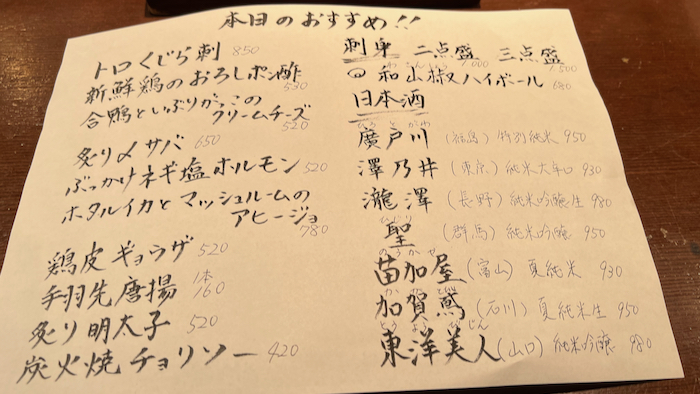 本日のおすすめ!!
トロくじら刺 850
新鮮鶏のおろしポン酢 530
合鴨といぶりがっこの
クリームチーズ 520
炙り〆サバ 650
ぶっかけネギ塩ホルモン 520
ホタルイカとマッシュルームの
アヒージョ 780
鶏皮ギョウザ 520
手羽先唐揚 1本 160
炙り明太子 520
炭火焼チョリソー 420
刺身 二点盛 1,000 三点盛 1,500
和山椒ハイボール 680
日本酒
廣戸川 (福島) 特別純米 950
澤乃井 (東京) 純米大辛口 930
瀧澤 (長野) 純米吟醸生 980
聖 ひじり (群馬) 純米吟醸 950
苗加屋 のうかや (富山) 夏純米 930
加賀鳶 (石川) 夏純米生 950
東洋美人 (山口) 純米吟醸 980